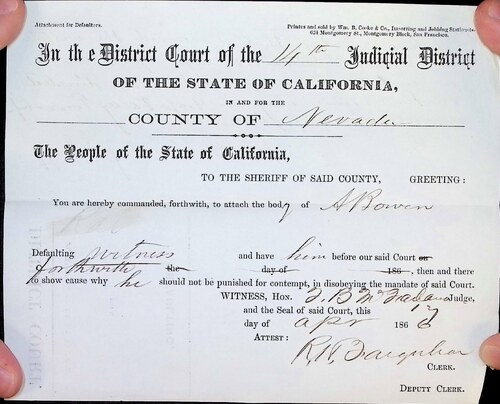 Attachment for Defaulters.
Printes and sold by Wm. B. Cooke & Co., Importing and Jobbing Stationers
624 Montgomery St., Montgomery Block, San Francisco.
In the District Court of the 14th Judicial District
OF THE STATE OF CALIFORNIA,
IN AND FOR THE
COUNTY OF Nevada
The People of the State of California,
TO THE SHERIFF OF SAID COUNTY, GREETING:
You are hereby commanded, forthwith, to attach the body of A Bowen
Defaulting witness and have him before our said Court on
forthwith the day of 186 , then and there
to show cause why he should not be punished for contempt, in disobeying the mandate of said Court.
WITNESS, Hon. T. B. McFarland Judge,
and the Seal of said Court, this 17
day of apr 1866
ATTEST:
R. H. Farquhar
CLERK.
DEPUTY CLERK.